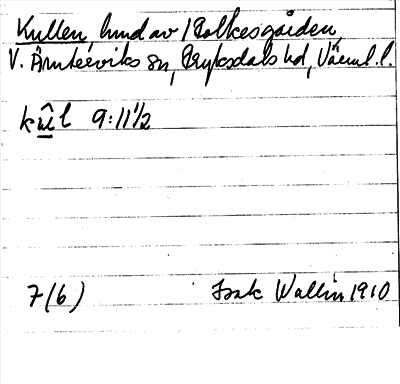 Kullen, hmd av 1 Tolkesgården,
V. Ämterviks sn, Fryksdals hd, Värml. l.
kûl 9:11½
7(6) Isak Wallin 1910